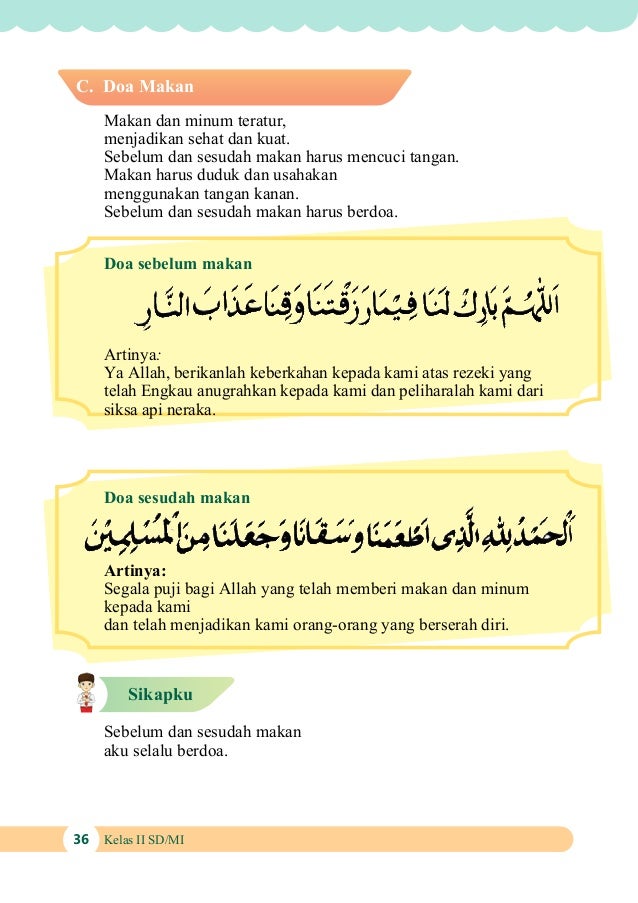 C. Doa Makan
Makan dan minum teratur,
menjadikan sehat dan kuat.
Sebelum dan sesudah makan harus mencuci tangan.
Makan harus duduk dan usahakan
menggunakan tangan kanan.
Sebelum dan sesudah makan harus berdoa.
Doa sebelum makan
اَللّٰهُمَّ بَارِكْ لَنَا فِيْمَا رَزَقْتَنَا وَقِنَا عَذَابَ النَّارِ
Artinya:
Ya Allah, berikanlah keberkahan kepada kami atas rezeki yang
telah Engkau anugrahkan kepada kami dan peliharalah kami dari
siksa api neraka.
Doa sesudah makan
اَلْحَمْدُ لِلّٰهِ الَّذِى اَطْعَمَنَا وَسَقَانَا وَجَعَلَنَا مِنَ الْمُسْلِمِيْنَ
Artinya:
Segala puji bagi Allah yang telah memberi makan dan minum
kepada kami
dan telah menjadikan kami orang-orang yang berserah diri.
Sikapku
Sebelum dan sesudah makan
aku selalu berdoa.
36 Kelas II SD/MI